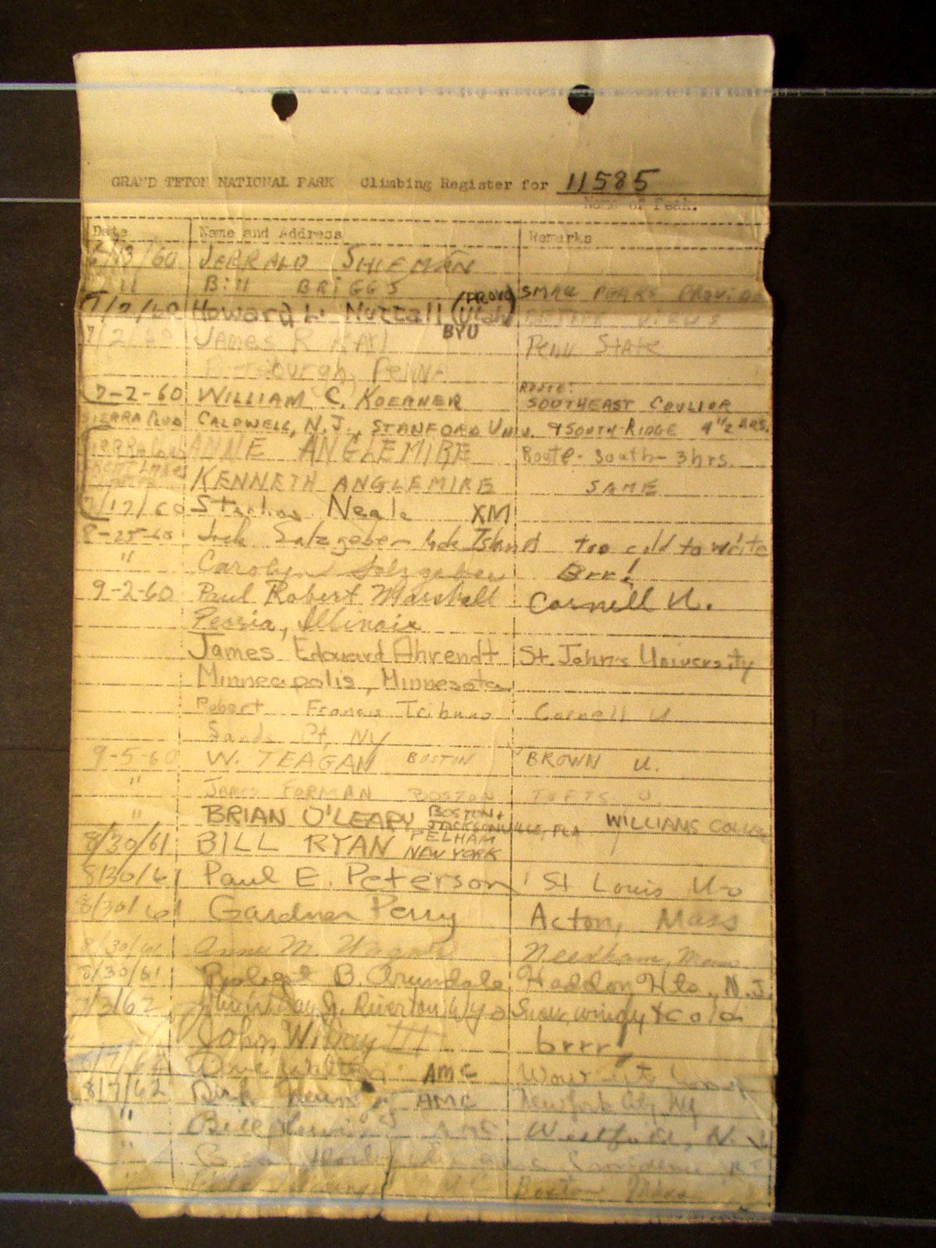 GRAND TETON NATIONAL PARK Climbing Register for 11585
Name of Peak.
Date Name and Address Remarks
6/13/60 JERRALD SHIEMAN
" 11 Bill BRIGGS SMALL PEAKS PROVIDE
7/2/60 Howard L. Nuttall (PROVO Utah) BYU BETTER VIEWS
7/2/60 James R Karl Penn State
Pittsburgh, Penna
7-2-60 WILLIAM C. KOERNER ROUTE: SOUTHEAST COULIOR
SIERRA CLUB CALDWELL, N.J., STANFORD UNIV. & SOUTH RIDGE 4 1/2 HRS.
ANNE ANGLEMIRE Route - South - 3 hrs.
KENNETH ANGLEMIRE SAME
7/17/60 Neale XM
8-25-60 Jack Salzgeber Island too cold to write
" Carolyn Salzgeber Brr!
9-2-60 Paul Robert Marshall Cornell U.
Peoria, Illinois
James Edouard Ahrendt St. John's University
Minneapolis, Minnesota
Robert Francis Cornell U
Sands Pt, NY
9-5-60 W. TEAGAN BOSTON BROWN U.
" JAMES FORMAN BOSTON TUFTS U.
" BRIAN O'LEARY BOSTON & JACKSONVILLE, FLA WILLIAMS COLLEGE
8/30/61 BILL RYAN PELHAM NEW YORK
8/30/61 Paul E. Peterson St Louis U
8/30/61 Gardner Perry Acton, Mass
8/30/61 Anne M. Wagner Needham, Mass
8/30/61 B. Arundale Haddon Hts., N.J.
7/2/62 John Wilday Jr. Riverton Wyo Snow, windy & cold
John Wilday III brrr!
Dave AMC Wow
8/7/62 Dirk AMC New York City NY
" Bill Westfield, N.J.
"
Boston Mass